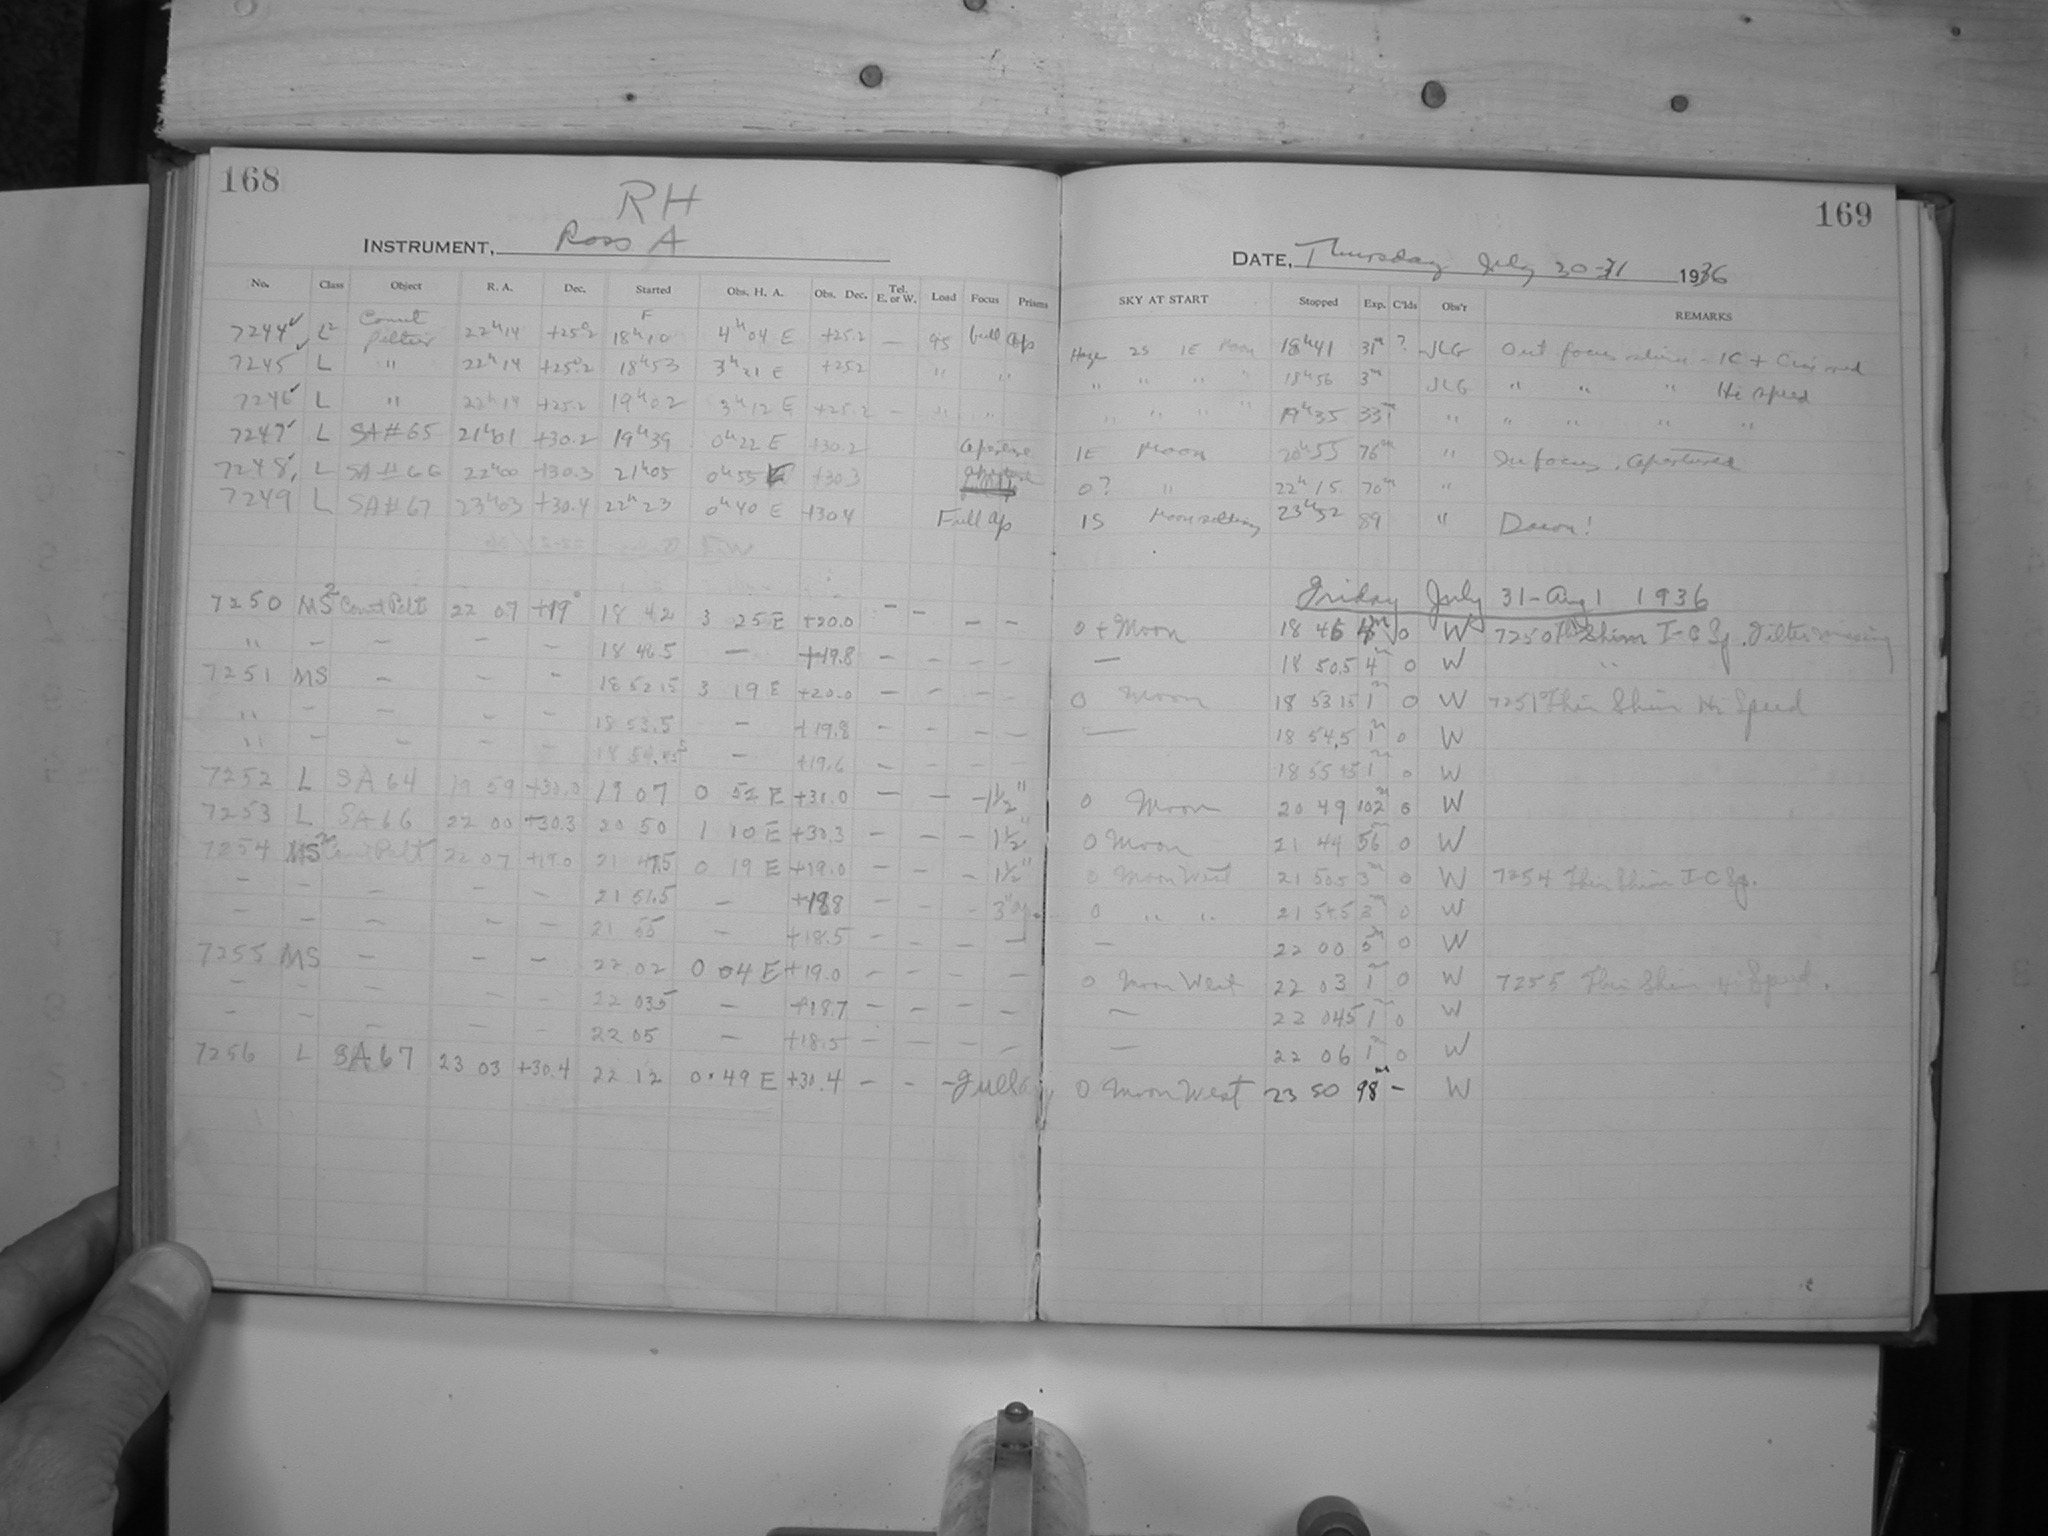 168
RH
INSTRUMENT, Ross A
No. Class Object R. A. Dec. Started Obs. H. A. Obs. Dec. Tel. E. or W. Load Focus Prisms
7244 L2 Comet Peltier 22h14 +25°2 18h10 4h04 E +25.2 — 95 full ap
7245 L " 22h14 +25°2 18h53 3h21 E +252 " "
7246 L " 22h14 +25.2 19h02 3h12 E +25.2 — " "
7247 L SA#65 21h01 +30.2 19h39 0h22 E +30.2 Aperture
7248 L SA#66 22h00 +30.3 21h05 0h55 E +30.3
7249 L SA#67 23h03 +30.4 22h23 0h40 E +30.4 Full ap
7250 MS2 Comet Pelt 22 07 +19° 18 42 3 25 E +20.0 — — — —
" — — — — 18 46.5 — +19.8 — — — —
7251 MS — — — 18 52 15 3 19 E +20.0 — — — —
" — — — — 18 53.5 — +19.8 — — — —
" — — — — 18 54.45s — +19.6 — — — —
7252 L SA 64 19 59 +30.0 19 07 0 52 E +30.0 — — — 1½"
7253 L SA 66 22 00 +30.3 20 50 1 10 E +30.3 — — — 1½"
7254 MS2 Comet Pelt 22 07 +19.0 21 47.5 0 19 E +19.0 — — — 1½"
— — — — — 21 51.5 — +18.8 — — — 3"
— — — — — 21 55 — +18.5 — — — —
7255 MS — — — 22 02 0 04 E +19.0 — — — —
— — — — — 22 035 — +18.7 — — — —
— — — — — 22 05 — +18.5 — — — —
7256 L SA 67 23 03 +30.4 22 12 0 49 E +30.4 — — — Full ap
169
DATE, Thursday July 30-31 1936
SKY AT START Stopped Exp. C'lds Obs'r REMARKS
Haze 2S 1E Moon 18h41 31m ? JLG Out focus
" " " " 18h56 3m JLG " " " Hi speed
" " " " 19h35 33m " " " " "
1E Moon 20h55 76m " In focus. Apertured
0? " 22h15 70m "
1S Moon setting 23h52 89 " Dawn!
Friday July 31-Aug 1 1936
0 + Moon 18 46 4m 0 W 7250 Thin Shim I-C Sp. Filter missing
— 18 50.5 4m 0 W "
0 Moon 18 53 15 1m 0 W 7251 Thin Shim Hi Speed
— 18 54.5 1m 0 W
18 55 45 1m 0 W
0 Moon 20 49 102m 0 W
0 Moon 21 44 56 0 W
0 Moon West 21 50.5 3m 0 W 7254 Thin Shim I-C Sp.
0 " " 21 54.5 3m 0 W
— 22 00 5m 0 W
0 Moon West 22 03 1m 0 W 7255 Thin Shim Hi Speed.
— 22 045 1m 0 W
— 22 06 1m 0 W
0 Moon West 23 50 98m — W